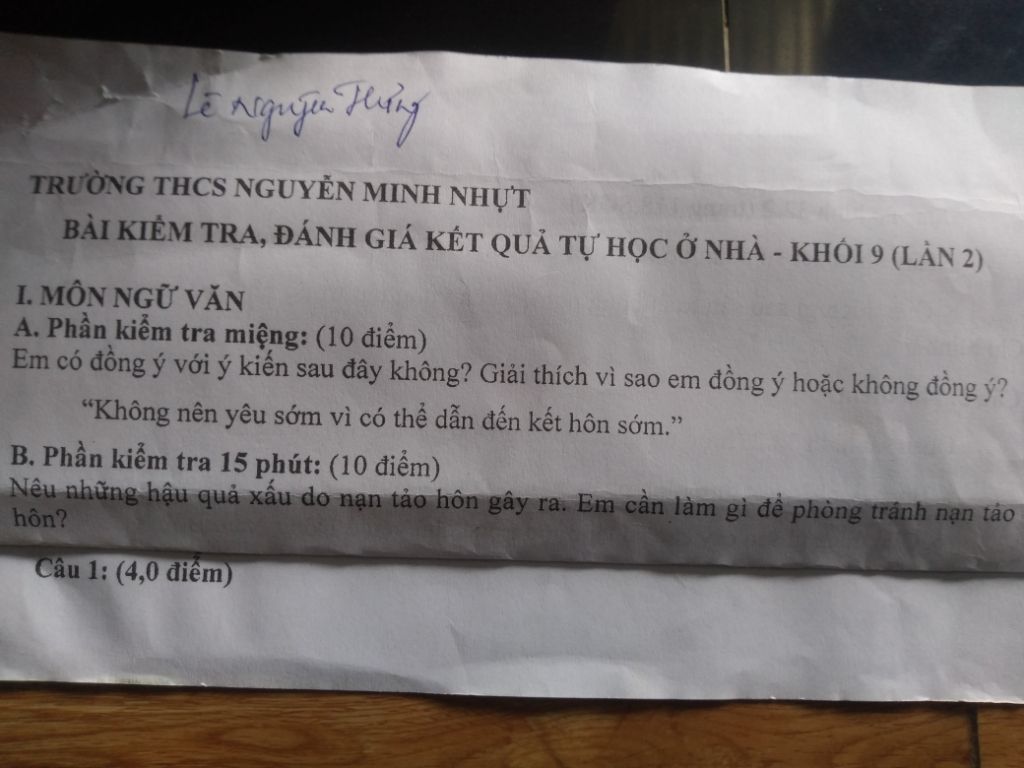 Lê Nguyên Hưng
TRƯỜNG THCS NGUYỄN MINH NHỰT
BÀI KIỂM TRA, ĐÁNH GIÁ KẾT QUẢ TỰ HỌC Ở NHÀ - KHỐI 9 (LẦN 2)
I. MÔN NGỮ VĂN
A. Phần kiểm tra miệng: (10 điểm)
Em có đồng ý với ý kiến sau đây không? Giải thích vì sao em đồng ý hoặc không đồng ý?
“Không nên yêu sớm vì có thể dẫn đến kết hôn sớm.”
B. Phần kiểm tra 15 phút: (10 điểm)
Nêu những hậu quả xấu do nạn tảo hôn gây ra. Em cần làm gì để phòng tránh nạn tảo
hôn?
Câu 1: (4,0 điểm)